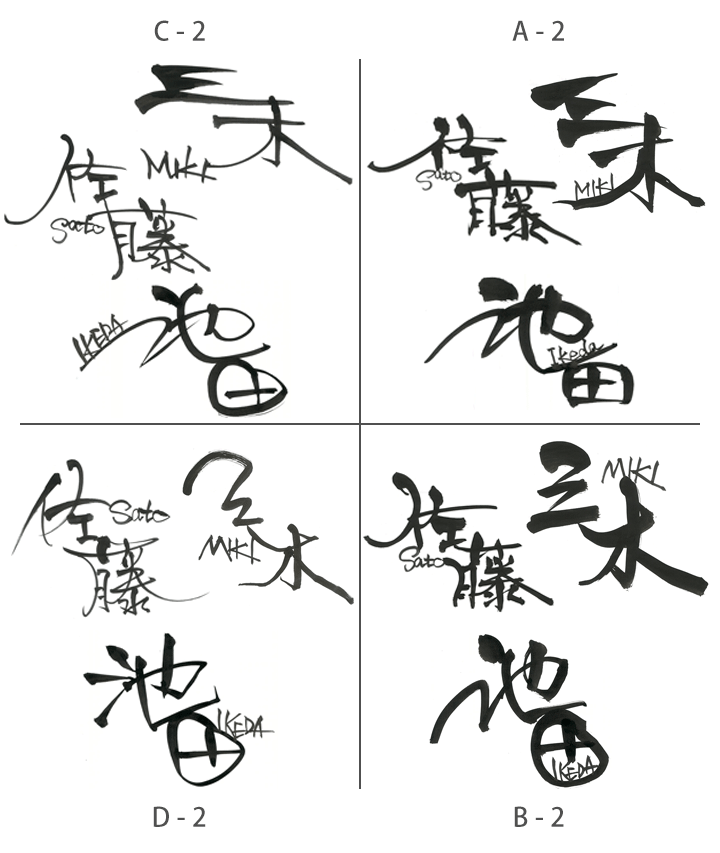 C - 2
三木
MIKI
佐藤
Sato
池田
IKEDA
A - 2
三木
MIKI
佐藤
Sato
池田
Ikeda
佐藤
Sato
三木
MIKI
池田
IKEDA
D - 2
三木
MIKI
佐藤
Sato
池田
IKEDA
B - 2